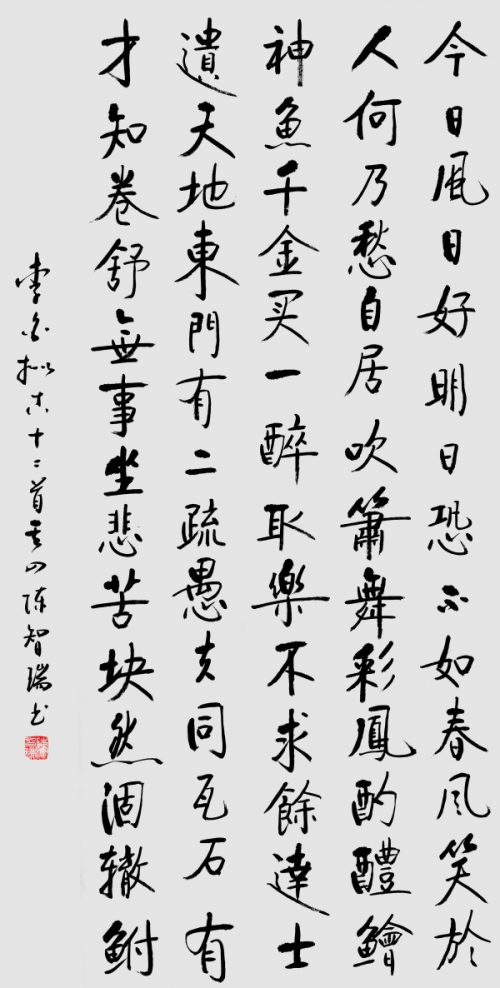 今日風日好明日恐不如春风笑於
人何乃愁自居吹簫舞彩鳳酌醴鱠
神魚千金买一醉取樂不求餘達士
遺天地東門有二疏愚夫同瓦石有
才知卷舒無事坐悲苦块然涸辙鲋
李白拟古十二首其四陈智瑞书